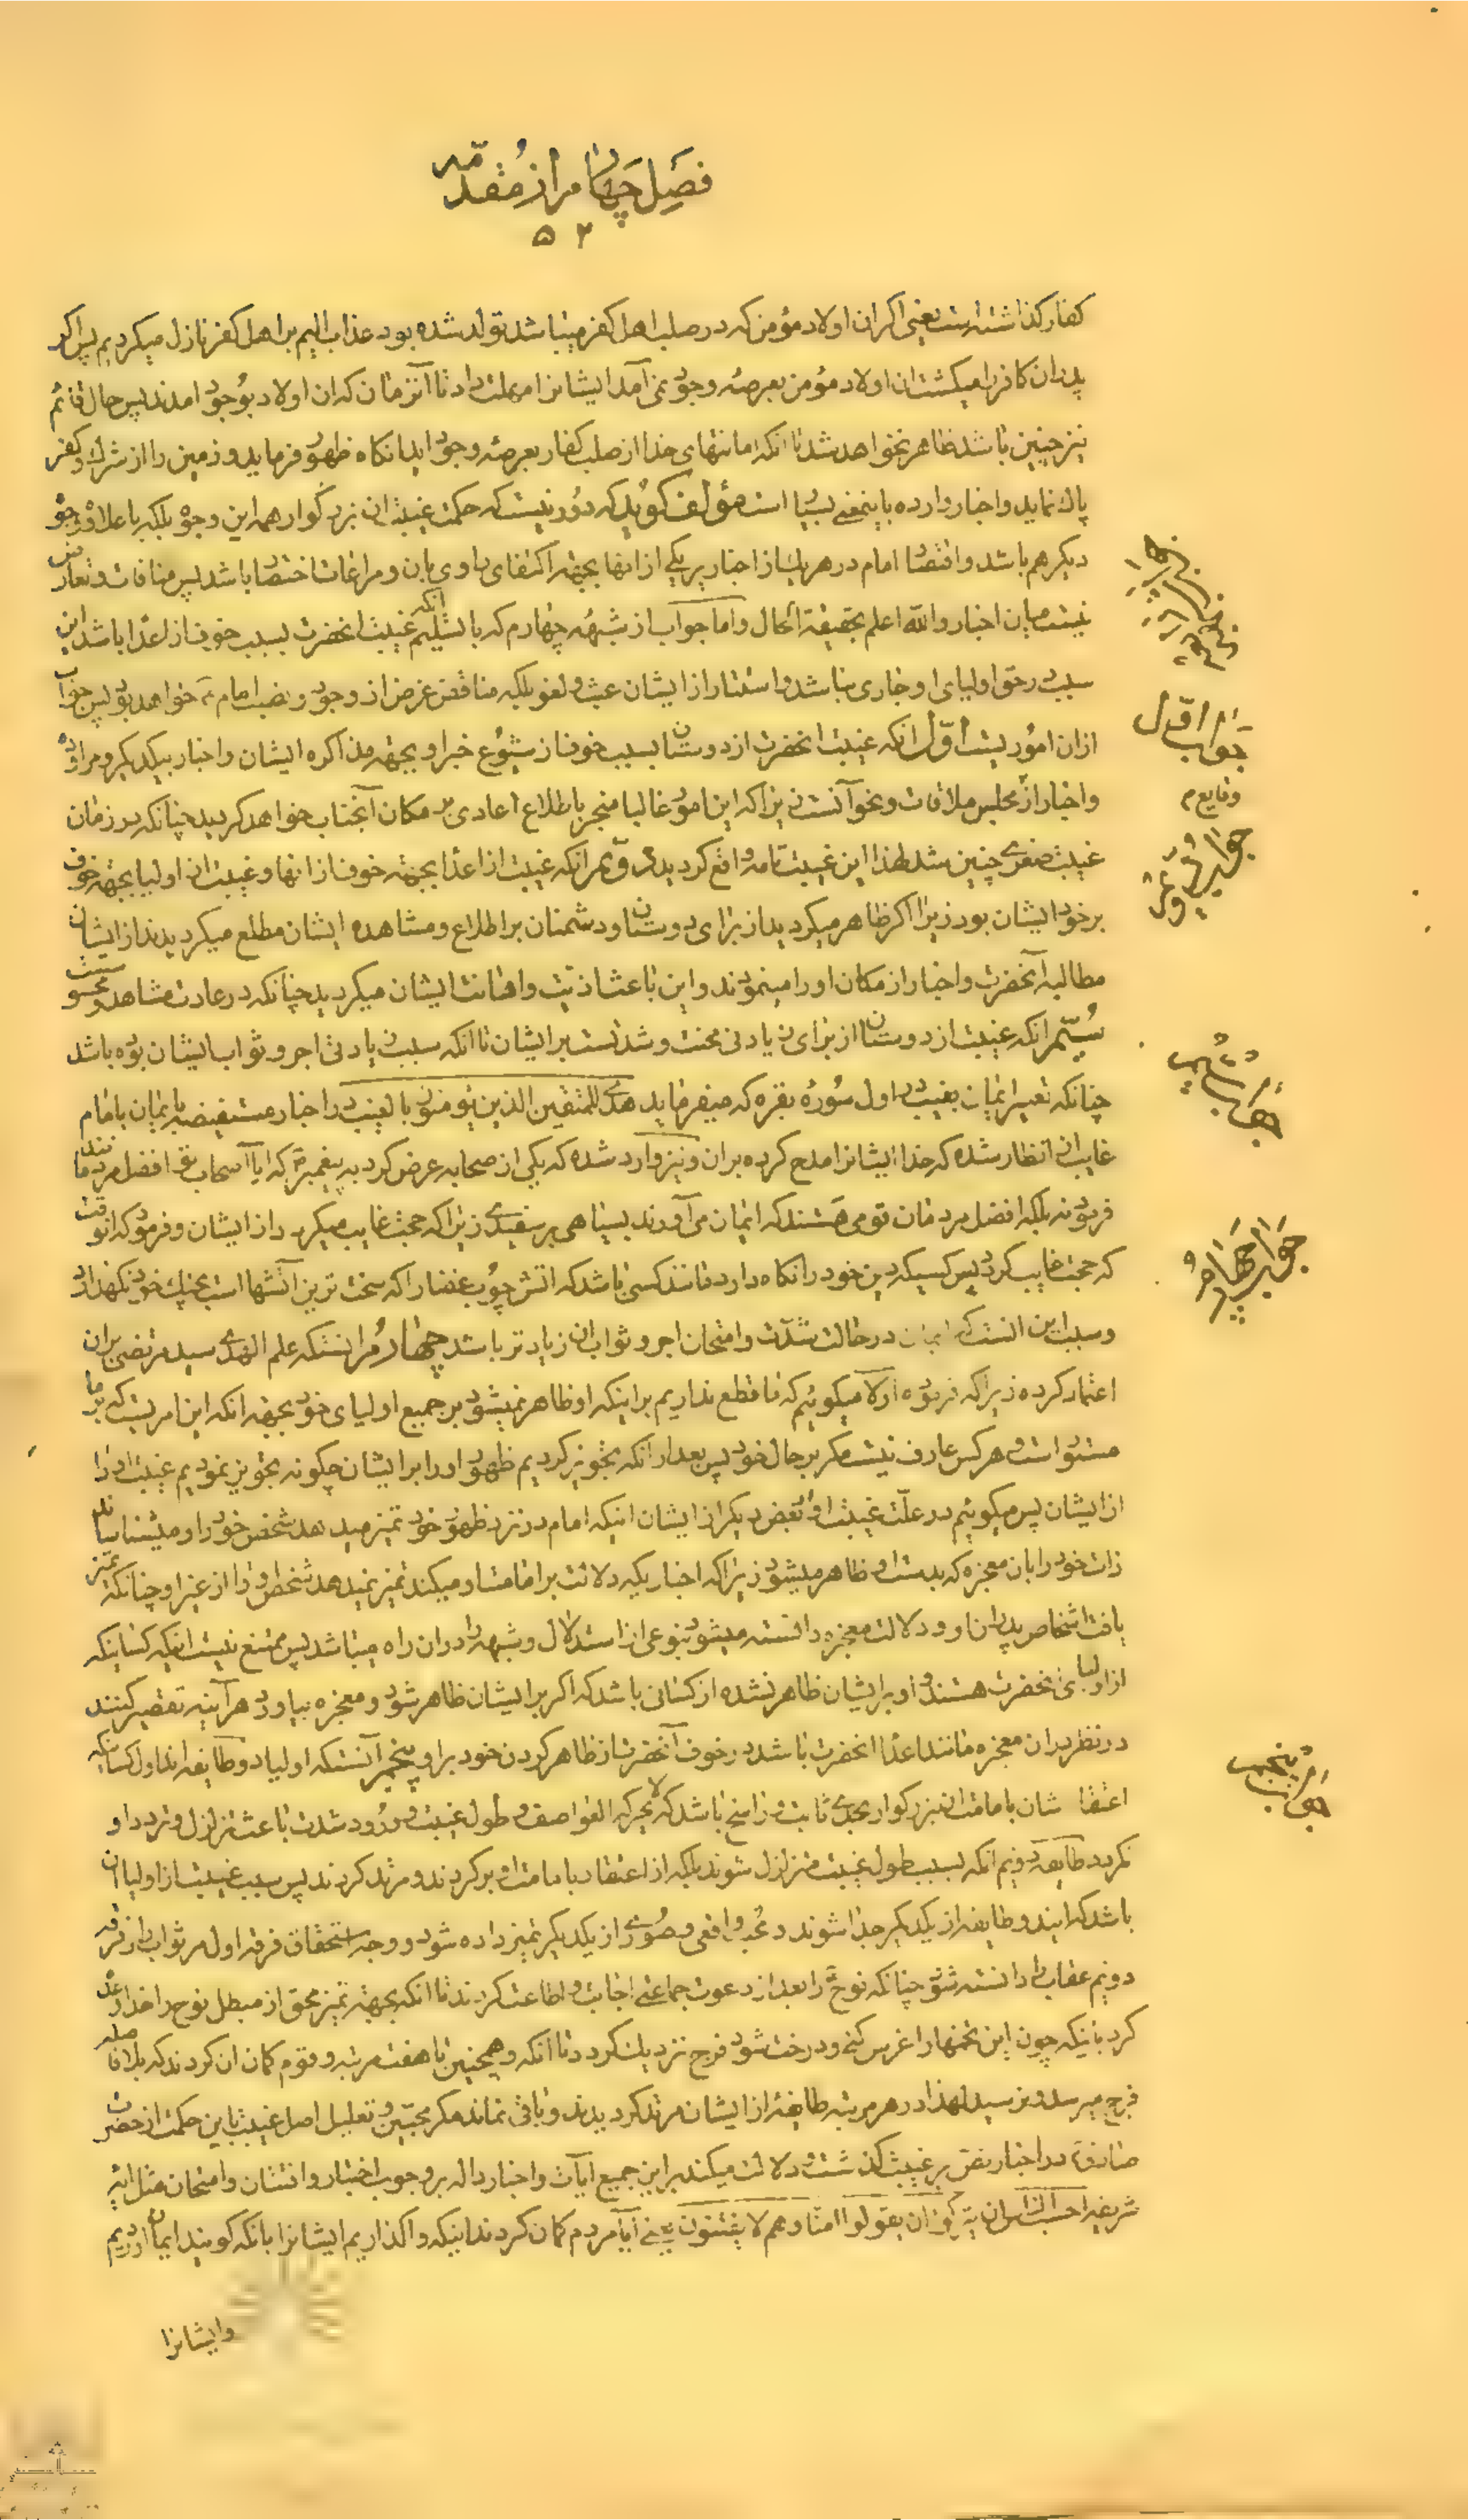 فصل چهارم از مقدمه
۵۲
کفار گذاشته است یعنی اگر ان اولاد مؤمن که در صلب اهل کفر میباشد تولد شده بود عذاب الیم بر اهل کفر نازل میکردیم پس اگر
پدران کافر را میکشت ان اولاد مؤمن بعرصه وجود نمی آمد ایشانرا مهلت داد تا آنزمان که ان اولاد بوجود امدند پس حال قائم
نیز چنین باشد ظاهر نخواهد شد تا انکه امانتهای خدا از صلب کفار بعرصه وجود اید انکاه ظهور فرماید و زمین را از شرک و کفر
پاک نماید و اخبار وارده باینمعنی بسیار است مؤلف کوید که دور نیست که حکمت غیبت ان بزرکوار همه این وجوه بلکه با علاوه وجوه
دیکر هم باشد و اقتصار امام در هریک از اخبار بر یکی از انها بجهة اکتفای راوی بان و مراعات اختصار باشد پس منافات و تعارض
نیست میان اخبار والله اعلم بحقیقة الحال و اما جواب از شبهه چهارم که با تسلیم انکه غیبت انحضرت بسبب خوف از اعدا باشد این
سبب در حق اولیای او جاری نباشد و استتار از ایشان عبث و لغو بلکه مناقض غرض از وجود و نصب امام ع خواهد بود پس جواب
ازان اموریست اول انکه غیبت انحضرت از دوستان بسبب خوف از شیوع خبر او بجهة مذاکره ایشان و اخبار بیکدیکر و مراوده
و اخبار از مجلس ملاقات و نحو آنست زیرا که این امور غالبا منجر باطلاع اعادی بر مکان آنجناب خواهد کردید چنانکه در زمان
غیبت صغری چنین شد لهذا این غیبت تامه واقع کردید دویم انکه غیبت از اعدا بجهة خوف از انها و غیبت از اولیا بجهة خوف
بر خود ایشان بود زیرا اکر ظاهر میکردید از برای دوستان و دشمنان بر اطلاع و مشاهده ایشان مطلع میکردیدند از ایشان
مطالبه آنحضرت و اخبار از مکان او را مینمودند و این باعث اذیت و اهانت ایشان میکردید چنانکه در عادت مشاهد و محسوسست
سیم انکه غیبت از دوستان از برای زیادتی محنت و شدتست بر ایشان تا انکه سبب زیادتی اجر و ثواب ایشان بوده باشد
چنانکه تفسیر ایمان بغیب در اول سوره بقره که میفرماید هدی للمتقین الذین یؤمنون بالغیب در اخبار مستفیضه بایمان بامام
غایب از انظار شده که خدا ایشانرا مدح کرده بران و نیز وارد شده که یکی از صحابه عرض کرد به پیغمبر ص که ایا اصحاب تو افضل مردمانند
فرمود نه بلکه افضل مردمان قومی هستند که ایمان می آورند بسیاهی بر سفیدی زیرا که حجت غایب میکردد از ایشان و فرمود که انوقت
که حجت غایب کردد پس کسیکه دین خود را نکاه دارد مانند کسی باشد که اتش چوب غضا را که سخت ترین اتشها است بچنک خود نکهدارد
و سبب این انست که ایمان در حالت شدت و امتحان اجر و ثواب ان زیادتر باشد چهارم انستکه علم الهدی سید مرتضی بران
اعتماد کرده زیرا که فرموده اولا میکوئیم که ما قطع نداریم بر اینکه او ظاهر نمیشود بر جمیع اولیای خود بجهة انکه این امریست که بر ما
مستور است و هرکس عارف نیست مکر بر حال خود پس بعد از انکه تجویز کردیم ظهور او را بر ایشان چکونه تجویز نمودیم غیبت او را
از ایشان پس میکوئیم در علت غیبت او از بعض دیکر از ایشان اینکه امام در نزد ظهور خود تمیز میدهد شخص خود را و میشناساند
ذات خود را بان معجزه که بدست او ظاهر میشود زیرا که اخباریکه دلالت بر امامت او میکند تمیز نمیدهد شخص او را از غیر او چنانکه تمیز
یافت اشخاص پدران او و دلالت معجزه دانسته میشود بنوعی از استدلال و شبهه را دران راه میباشد پس ممتنع نیست اینکه کسانیکه
از اولیای انحضرت هستند و او بر ایشان ظاهر نشده از کسانی باشد که اکر بر ایشان ظاهر شود و معجزه بیاورد هر آینه تقصیر کنند
در نظر بدان معجزه مانند اعدا انحضرت باشد در خوف آنحضرت از ظاهر کردن خود بر او پنجم آنستکه اولیا دو طایفه اند اول کسانیکه
اعتقاد شان بامامت ان بزرکوار بحدی ثابت و راسخ باشد که لا یحرکه العواصف و طول غیبت و ورود شدت باعث تزلزل و تردد او
نکردد طایفه دویم انکه بسبب طول غیبت متزلزل شوند بلکه از اعتقاد بامامت او برکردند و مرتد کردند پس سبب غیبت از اولیا ان
باشد که ایندو طایفه از یکدیکر جدا شوند و محب واقعی و صوری از یکدیکر تمیز داده شود و وجه استحقاق فرقه اول مر ثواب را و فرقه
دویم عقاب را دانسته شود چنانکه نوح ع را بعد از دعوت جماعتی اجابت و اطاعت کردند تا انکه بجهة تمیز محق از مبطل نوح را خدا وعده
کرد باینکه چون این تخمها را غرس کنی و درخت شود فرج نزدیک کردد تا انکه و همچنین تا هفت مرتبه و قوم کمان ان کردند که بلا فاصله
فرج میرسد و نرسید لهذا در هر مرتبه طایفهٔ از ایشان مرتد کردیدند و باقی نماند مکر محبین و تعلیل اصل غیبت باین حکمت از حضرت
صادق ع در اخبار نص بر غیبت کذشت و دلالت میکند بر این جمیع ایات و اخبار داله بر وجوب اختبار و افتتان و امتحان مثل ایه
شریفه احسب الناس ان یترکوا ان یقولوا امنا و هم لا یفتنون یعنی آیا مردم کمان کردند اینکه واکذاریم ایشانرا بانکه کویند ایمان اوردیم
وایشانرا
جواب اول
وقایع م
جواب دویم
جواب سیم
جواب چهارم
جواب پنجم